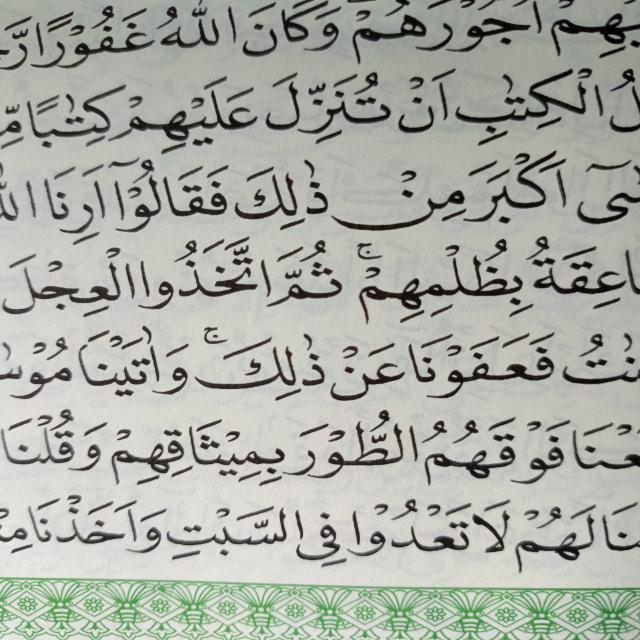 اُجُوْرَهُمْ وَكَانَ اللّٰهُ غَفُوْرًا
الْكِتٰبِ اَنْ تُنَزِّلَ عَلَيْهِمْ كِتٰبًا
اَكْبَرَ مِنْ ذٰلِكَ فَقَالُوْٓا اَرِنَا
بِظُلْمِهِمْ ۚ ثُمَّ اتَّخَذُوا الْعِجْلَ
فَعَفَوْنَا عَنْ ذٰلِكَ ۚ وَاٰتَيْنَا
فَوْقَهُمُ الطُّوْرَ بِمِيْثَاقِهِمْ وَقُلْنَا
لَهُمْ لَا تَعْدُوْا فِى السَّبْتِ وَاَخَذْنَا